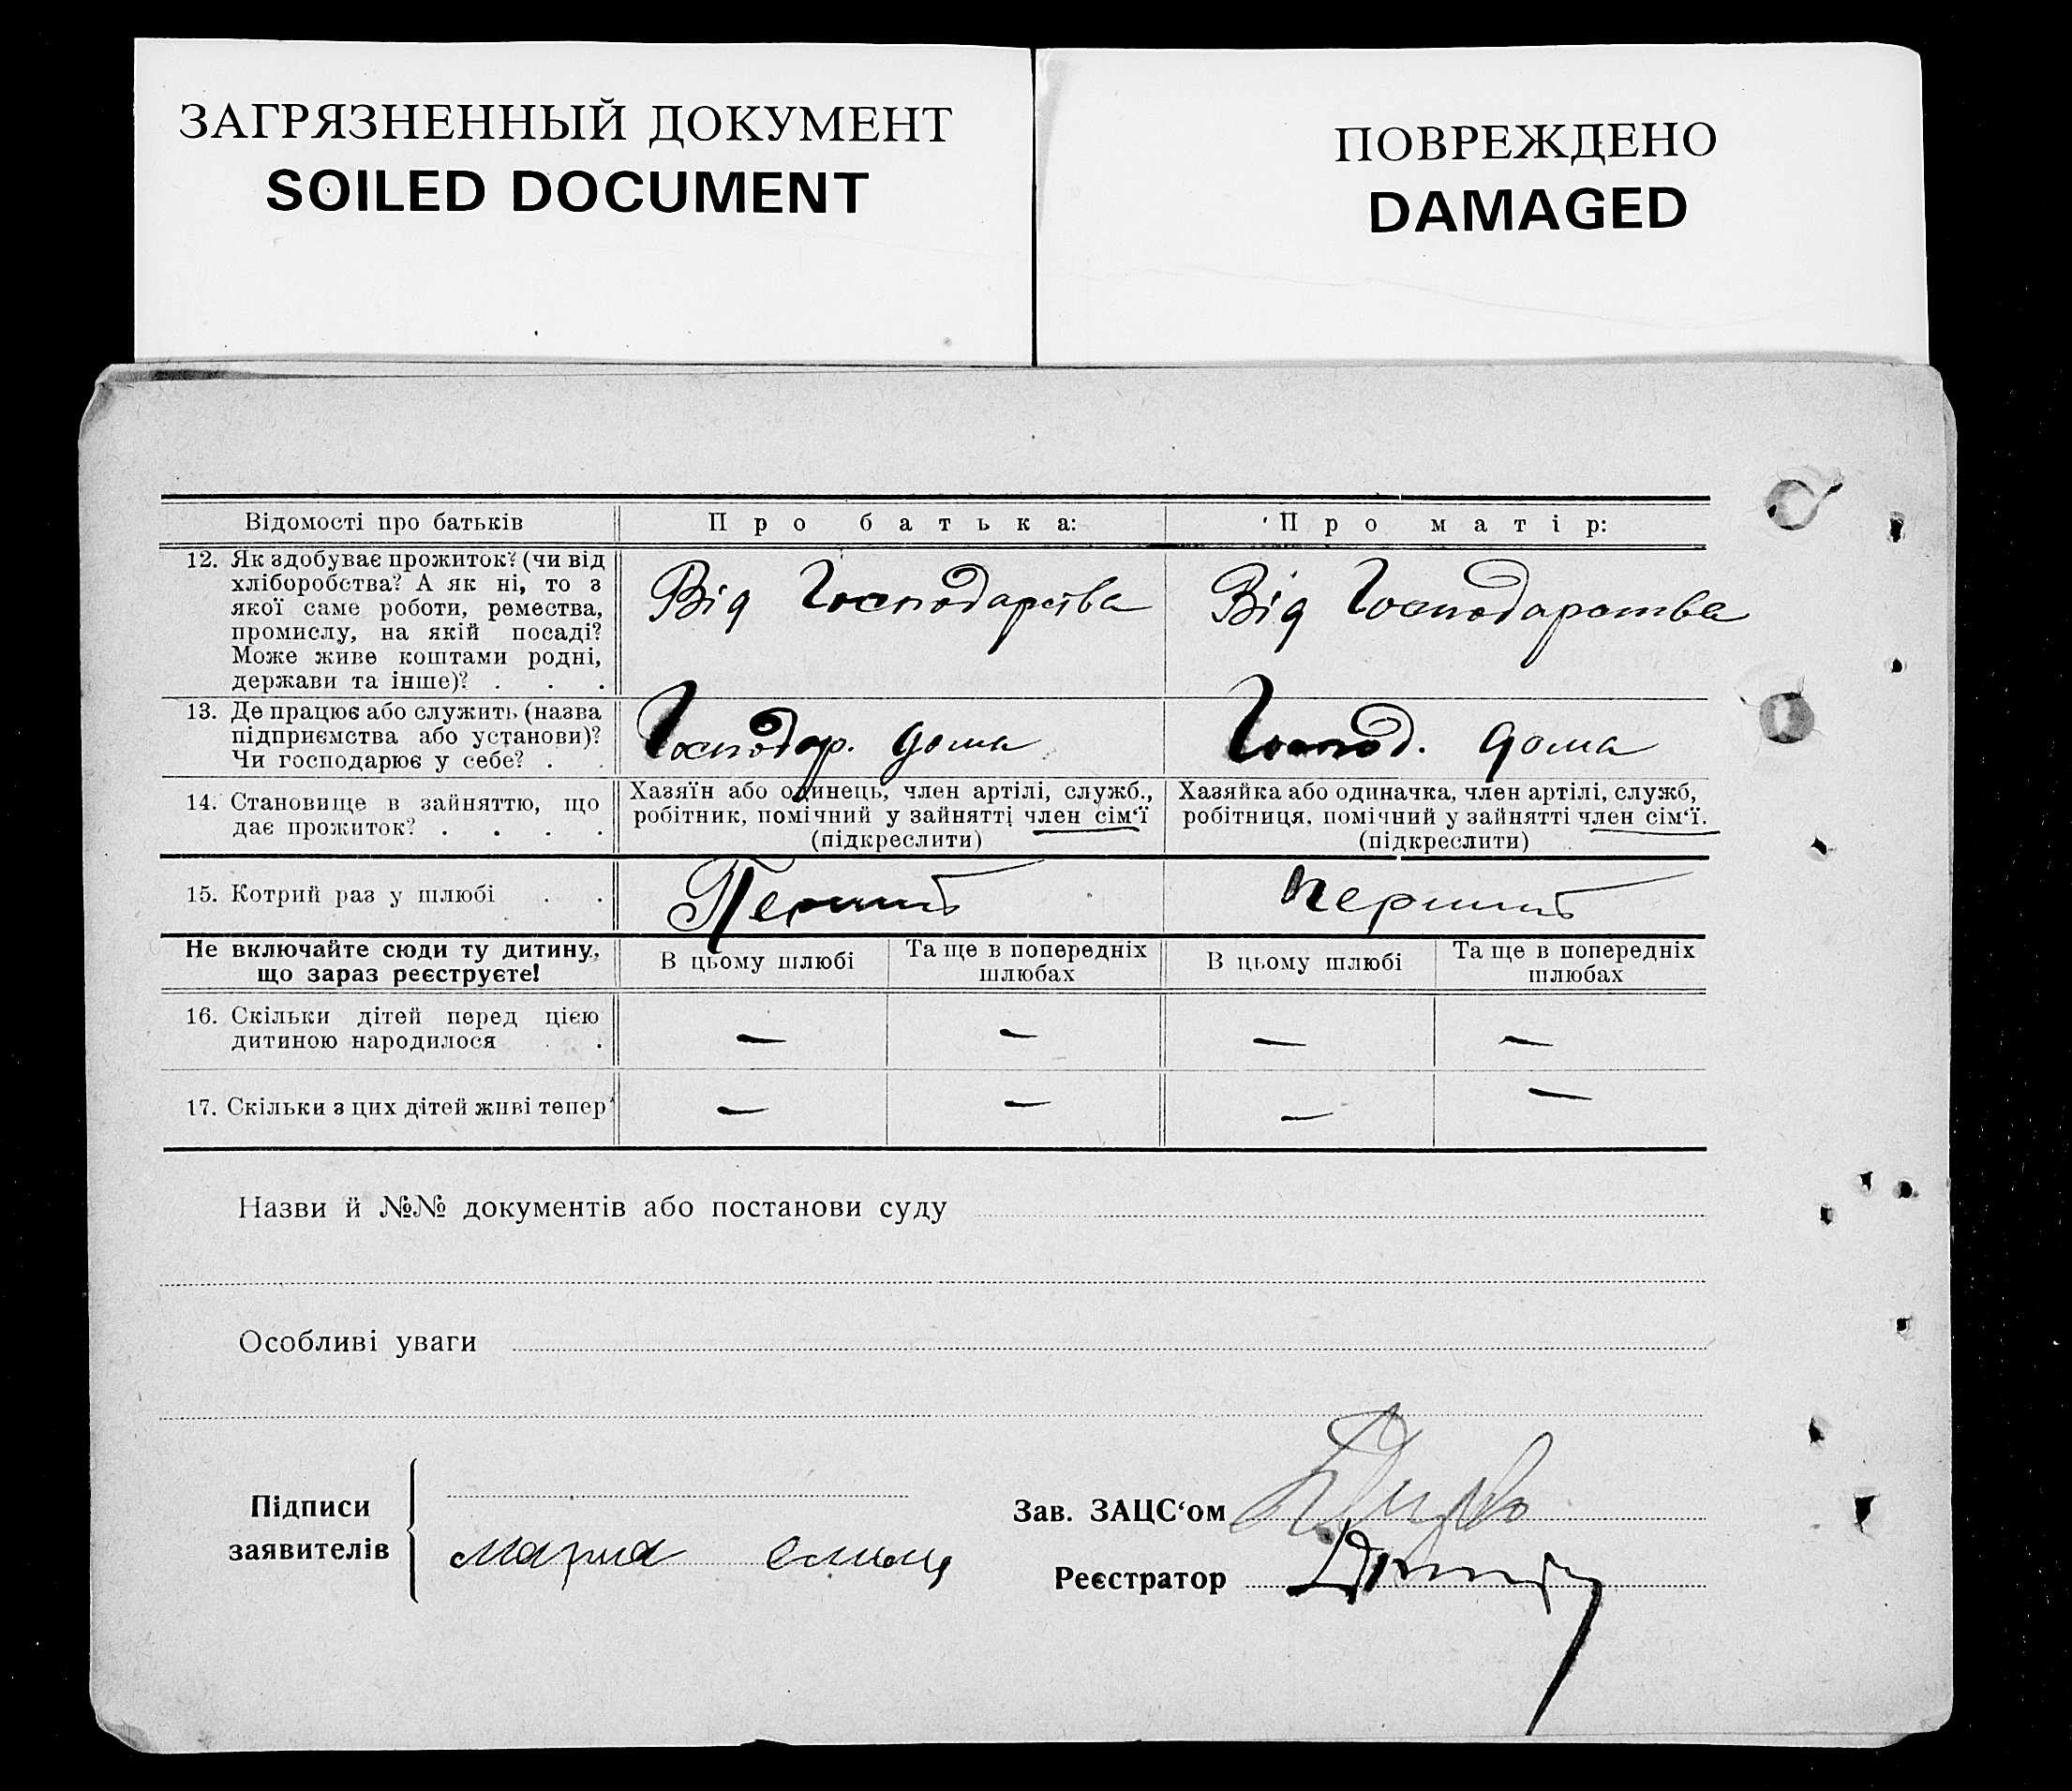 ЗАГРЯЗНЕННЫЙ ДОКУМЕНТ
SOILED DOCUMENT
ПОВРЕЖДЕНО
DAMAGED
Відомості про батьків
Про батька:
Про матір:
12. Як здобуває прожиток? (чи від
хліборобства? А як ні, то з
якої саме роботи, ремества,
промислу, на якій посаді?
Може живе коштами родні,
держави та інше)? . . .
Від Господарства
Від Господарства
13. Де працює або служить (назва
підприємства або установи)?
Чи господарює у себе? . .
Господар. дома
Господ. дома
14. Становище в зайняттю, що
дає прожиток? . . . .
Хазяїн або одинець, член артілі, служб.,
робітник, помічний у зайнятті член сім‘ї
(підкреслити)
Хазяйка або одиначка, член артілі, служб,
робітниця, помічний у зайнятті член сім‘ї.
(підкреслити)
15. Котрий раз у шлюбі . .
Перший
перший
Не включайте сюди ту дитину,
що зараз реєструєте!
В цьому шлюбі
Та ще в попередніх
шлюбах
В цьому шлюбі
Та ще в попередніх
шлюбах
16. Скільки дітей перед цією
дитиною народилося . .
— — — —
17. Скільки з цих дітей живі тепер
— — — —
Назви й №№ документів або постанови суду
Особливі уваги
Підписи
заявителів
Мария
Зав. ЗАЦС‘ом
Реєстратор